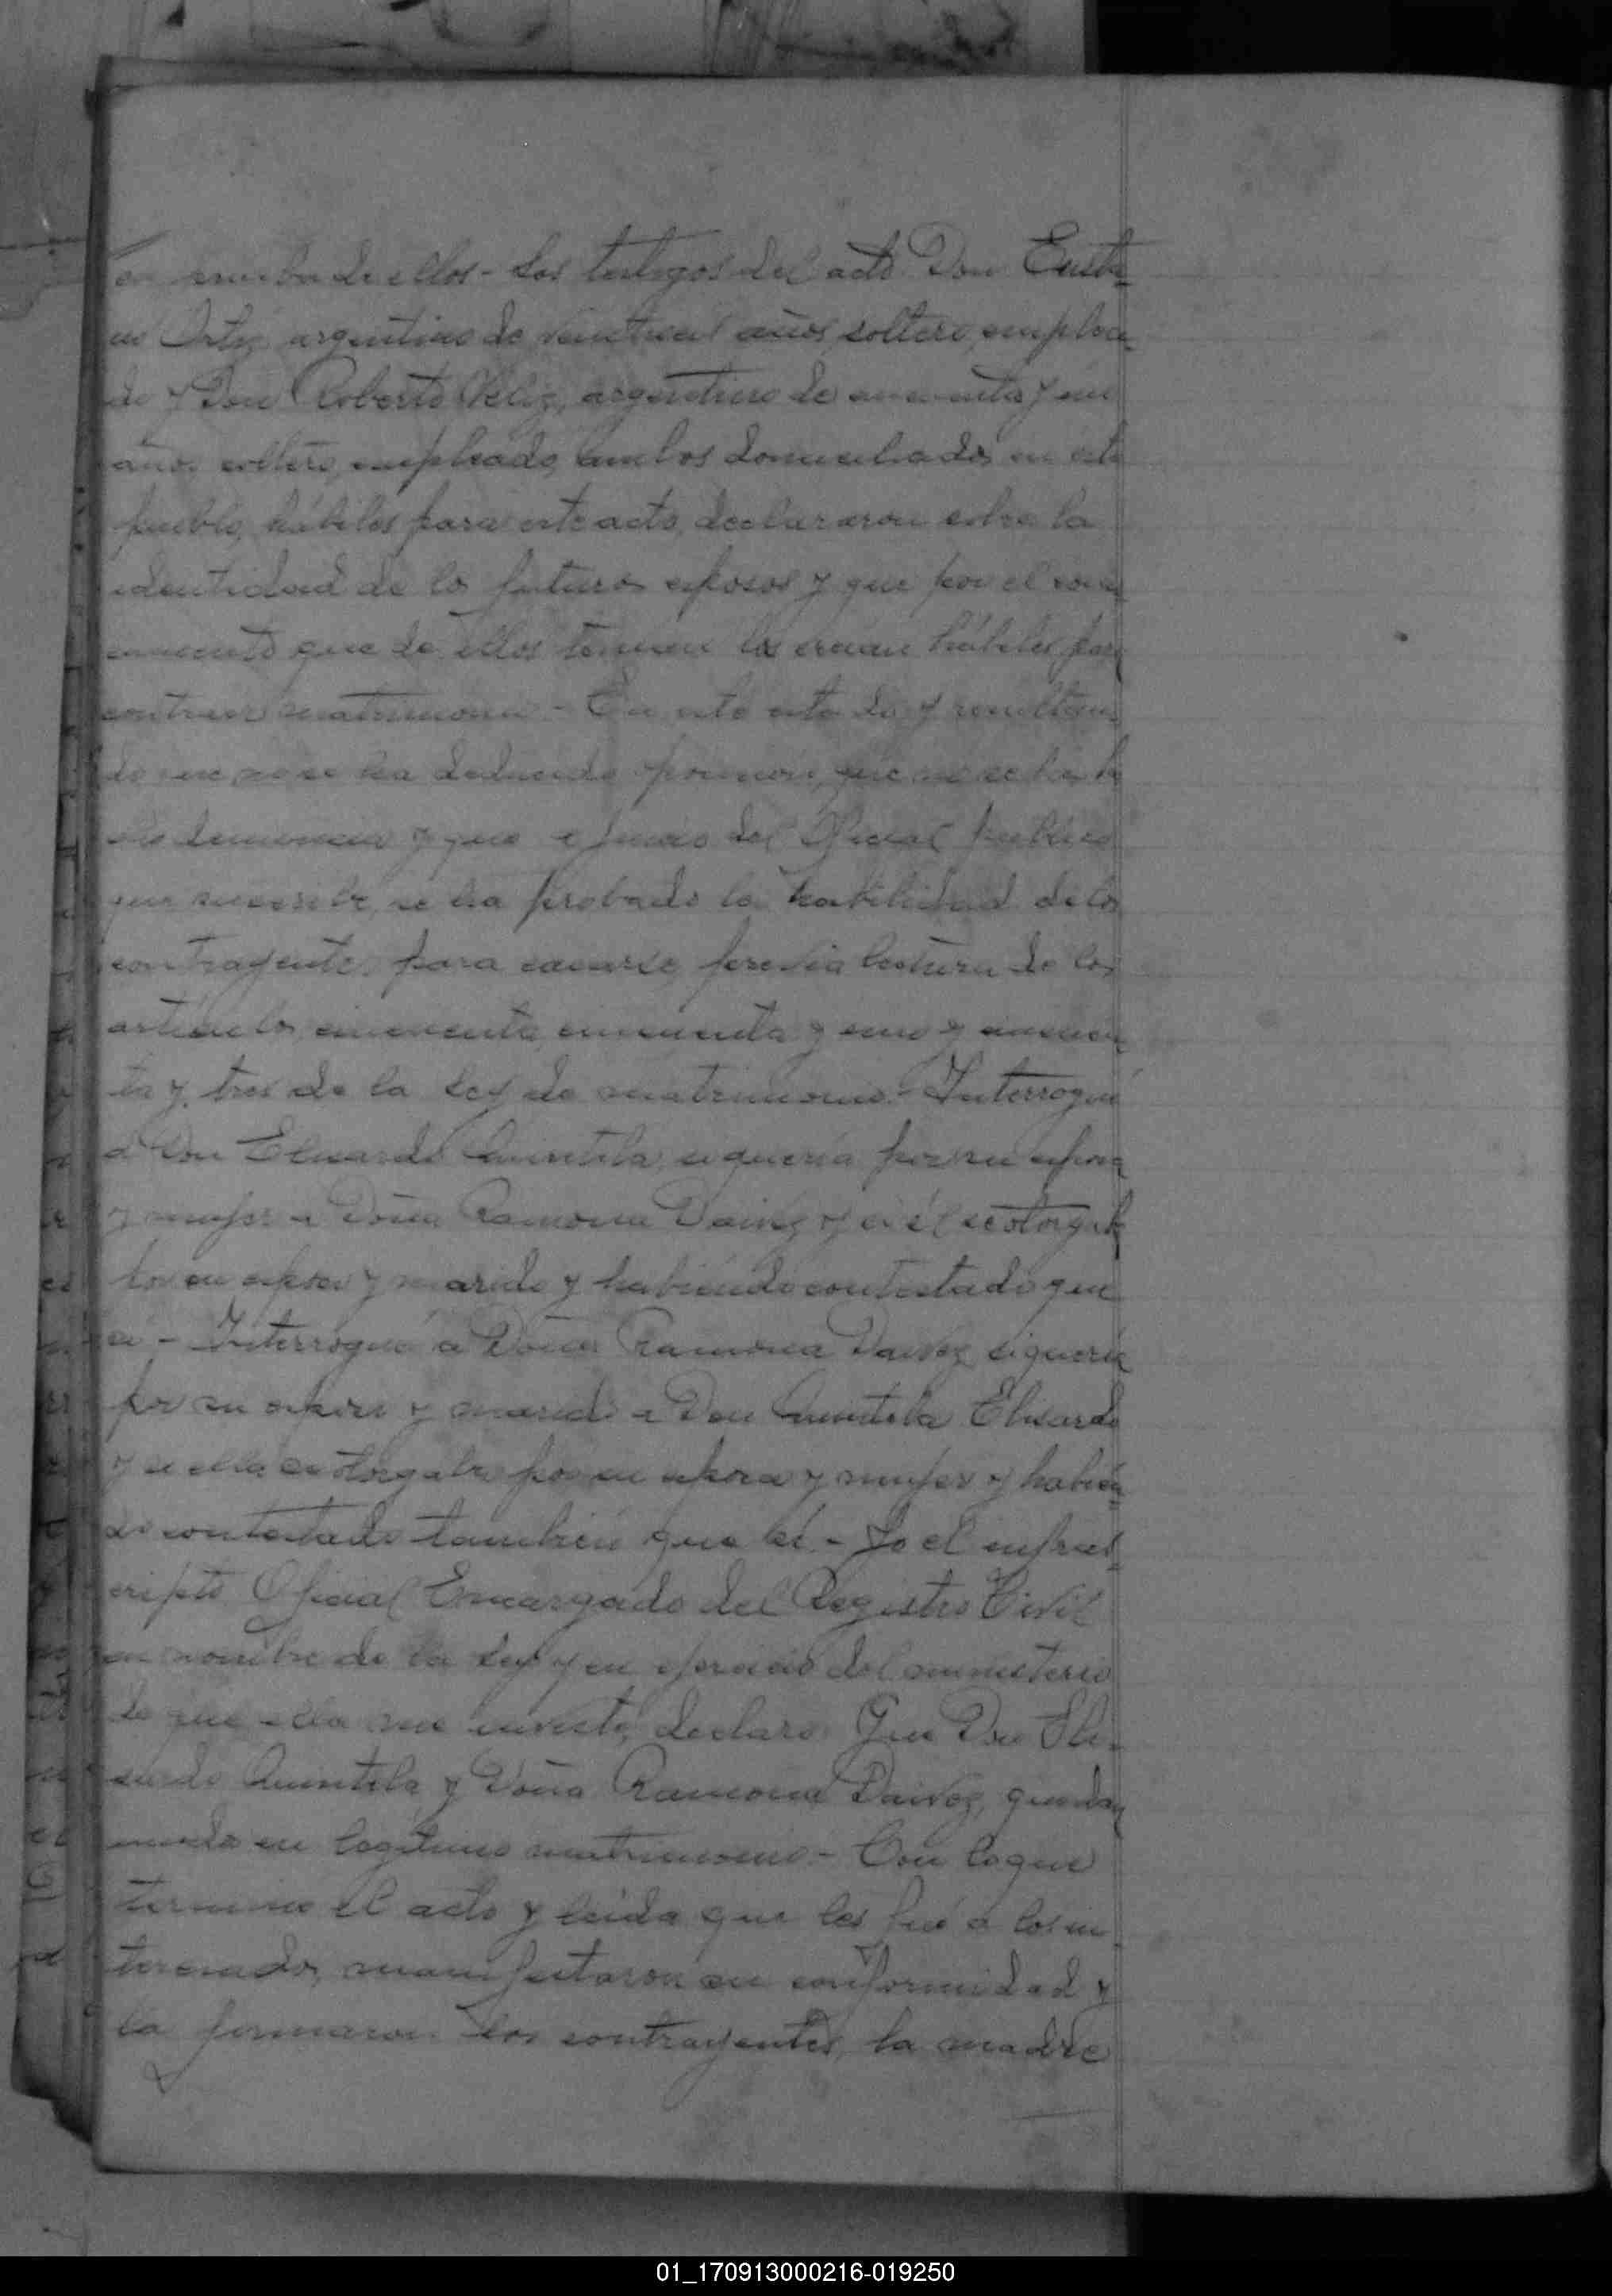 en prueba de ellos - Los testigos del acto Don
Ortiz, argentino de años, soltero, emplea-
do y Don Roberto Veliz, argentino de y un
años soltero, empleado, ambos domiciliados en este
pueblo, hábiles para este acto, declararon sobre la
identidad de los futuros esposos y que por el cono
cimiento que de ellos tenian los creian hábiles para
contraer matrimonio - En este estado y resultan
do que no se ha deducido oposicion, que no se ha he
cho denuncia y que a juicio del Oficial público
que suscribe, se ha probado la habilidad de los
contrayentes para casarse, previa lectura de los
articulos cincuenta, cincuenta y uno y cincuen
ta y tres de la Ley de matrimonio - Interrogué
a Don Elisardo Quintela, si queria por su esposa
y mujer a Doña Ramona y si él se otorgaba
por su esposo y marido y habiendo contestado que
si - Interrogué a Doña Ramona si queria
por su esposo y marido a Don Quintela Elisardo
y si ella se otorgaba por su esposa y mujer y habien
do contestado tambien que si - Yo el infras-
cripto Oficial Encargado del Registro Civil
en nombre de la Ley y en ejercicio del ministerio
de que ella me inviste, declaro Que Don Eli-
sardo Quintela y Doña Ramona quedan
unidos en legitimo matrimonio - Con lo que
termino el acto y leida que les fué a los in
teresados, manifestaron su conformidad y
la firmaron los contrayentes, la madre
01_170913000216-019250